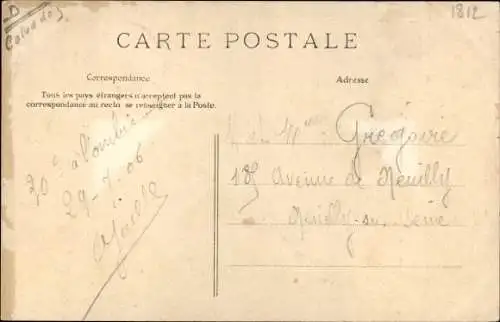 D
Calvados
1812
CARTE POSTALE
Correspondance
Adresse
Tous les pays étrangers n'acceptent pas la
correspondance au recto se renseigner à la Poste.
30° à l'ombre
29-7-06
M et Mme Gregoire
185 Avenue de Neuilly
Neuilly-sur-Seine